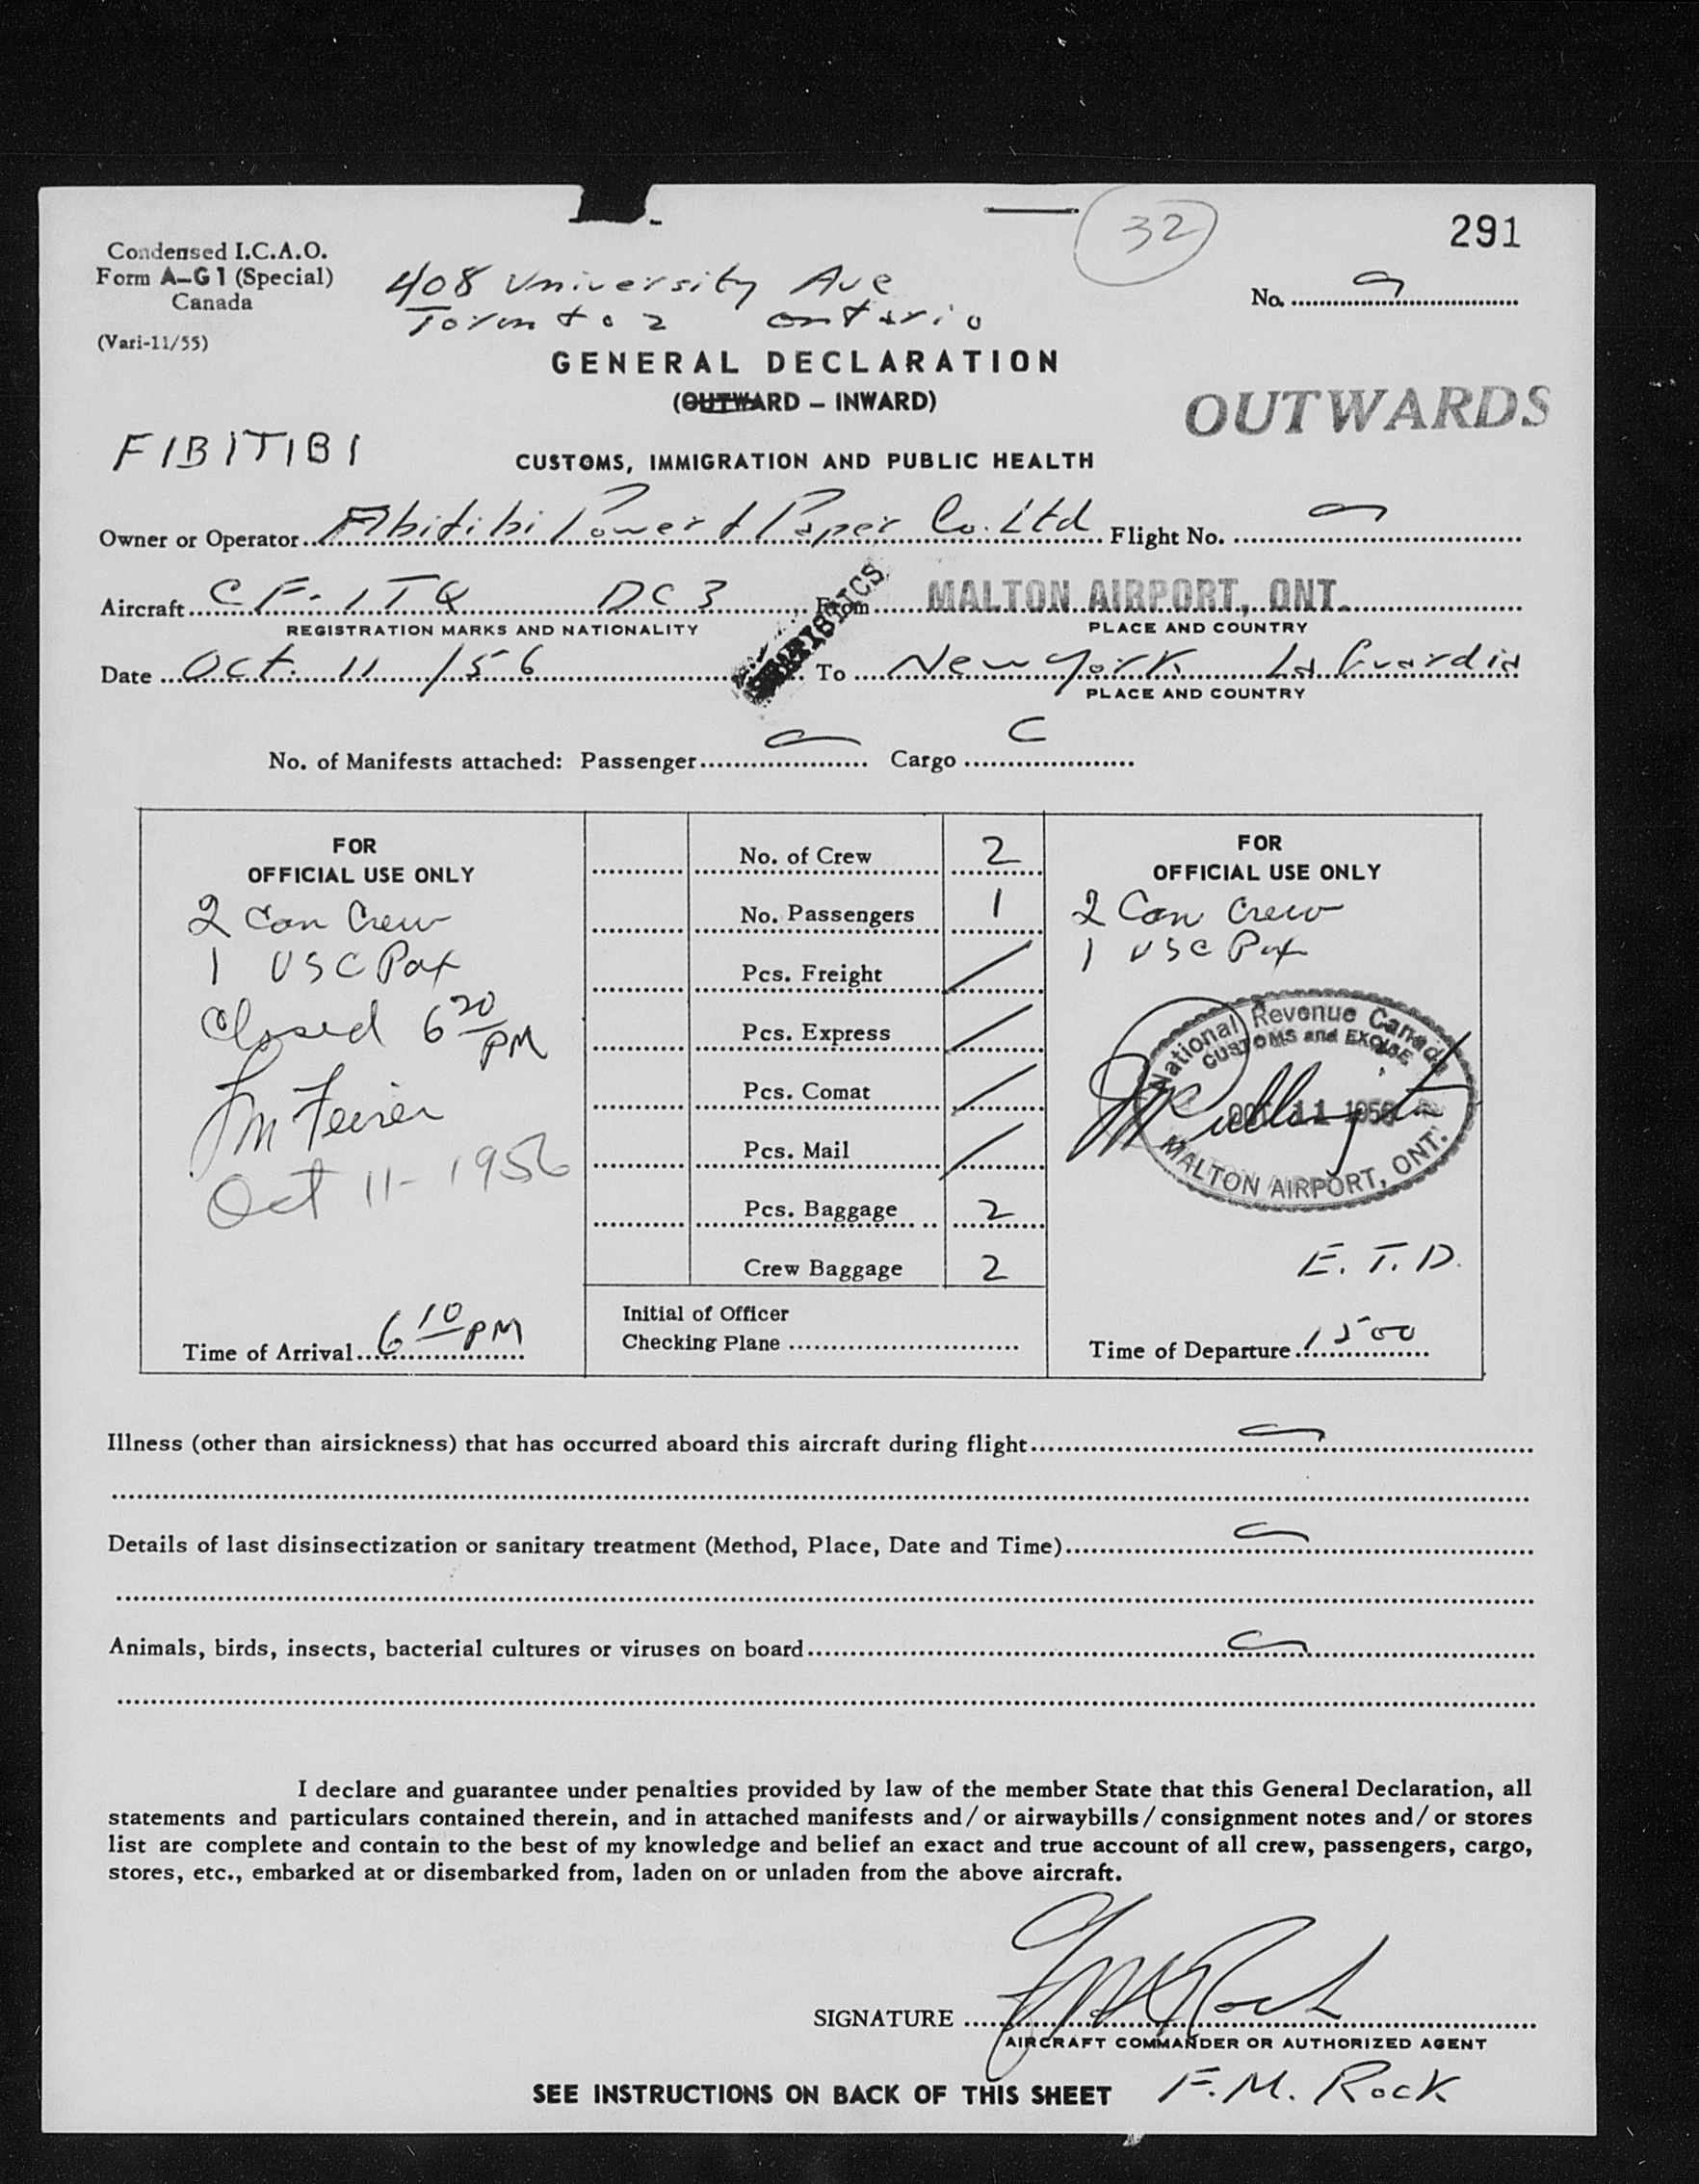 32
291
Condensed I.C.A.O.
Form A-G1 (Special)
Canada
(Vari-11/55)
408 University Ave
Toronto 2 Ontario
No.
GENERAL DECLARATION
(OUTWARD – INWARD)
OUTWARDS
FIBITIBI
CUSTOMS, IMMIGRATION AND PUBLIC HEALTH
Owner or Operator Abitibi Power & Paper Co. Ltd Flight No.
Aircraft CF-ITQ DC3 From MALTON AIRPORT, ONT.
REGISTRATION MARKS AND NATIONALITY PLACE AND COUNTRY
STATISTICS
Date Oct. 11/56 To New York La Guardia
PLACE AND COUNTRY
No. of Manifests attached: Passenger Cargo
FOR
OFFICIAL USE ONLY
2 Can Crew
1 USC Pax
Closed 6 20 PM
Oct 11-1956
Time of Arrival 6 10 PM
No. of Crew 2
No. Passengers 1
Pcs. Freight /
Pcs. Express /
Pcs. Comat /
Pcs. Mail /
Pcs. Baggage 2
Crew Baggage 2
Initial of Officer
Checking Plane
FOR
OFFICIAL USE ONLY
2 Can Crew
1 USC Pax
National Revenue Canada
CUSTOMS and EXCISE
OCT 11 1956
MALTON AIRPORT, ONT.
E.T.D.
Time of Departure 1500
Illness (other than airsickness) that has occurred aboard this aircraft during flight
Details of last disinsectization or sanitary treatment (Method, Place, Date and Time)
Animals, birds, insects, bacterial cultures or viruses on board
I declare and guarantee under penalties provided by law of the member State that this General Declaration, all
statements and particulars contained therein, and in attached manifests and/or airwaybills/consignment notes and/or stores
list are complete and contain to the best of my knowledge and belief an exact and true account of all crew, passengers, cargo,
stores, etc., embarked at or disembarked from, laden on or unladen from the above aircraft.
SIGNATURE FM Rock
AIRCRAFT COMMANDER OR AUTHORIZED AGENT
SEE INSTRUCTIONS ON BACK OF THIS SHEET F.M. Rock